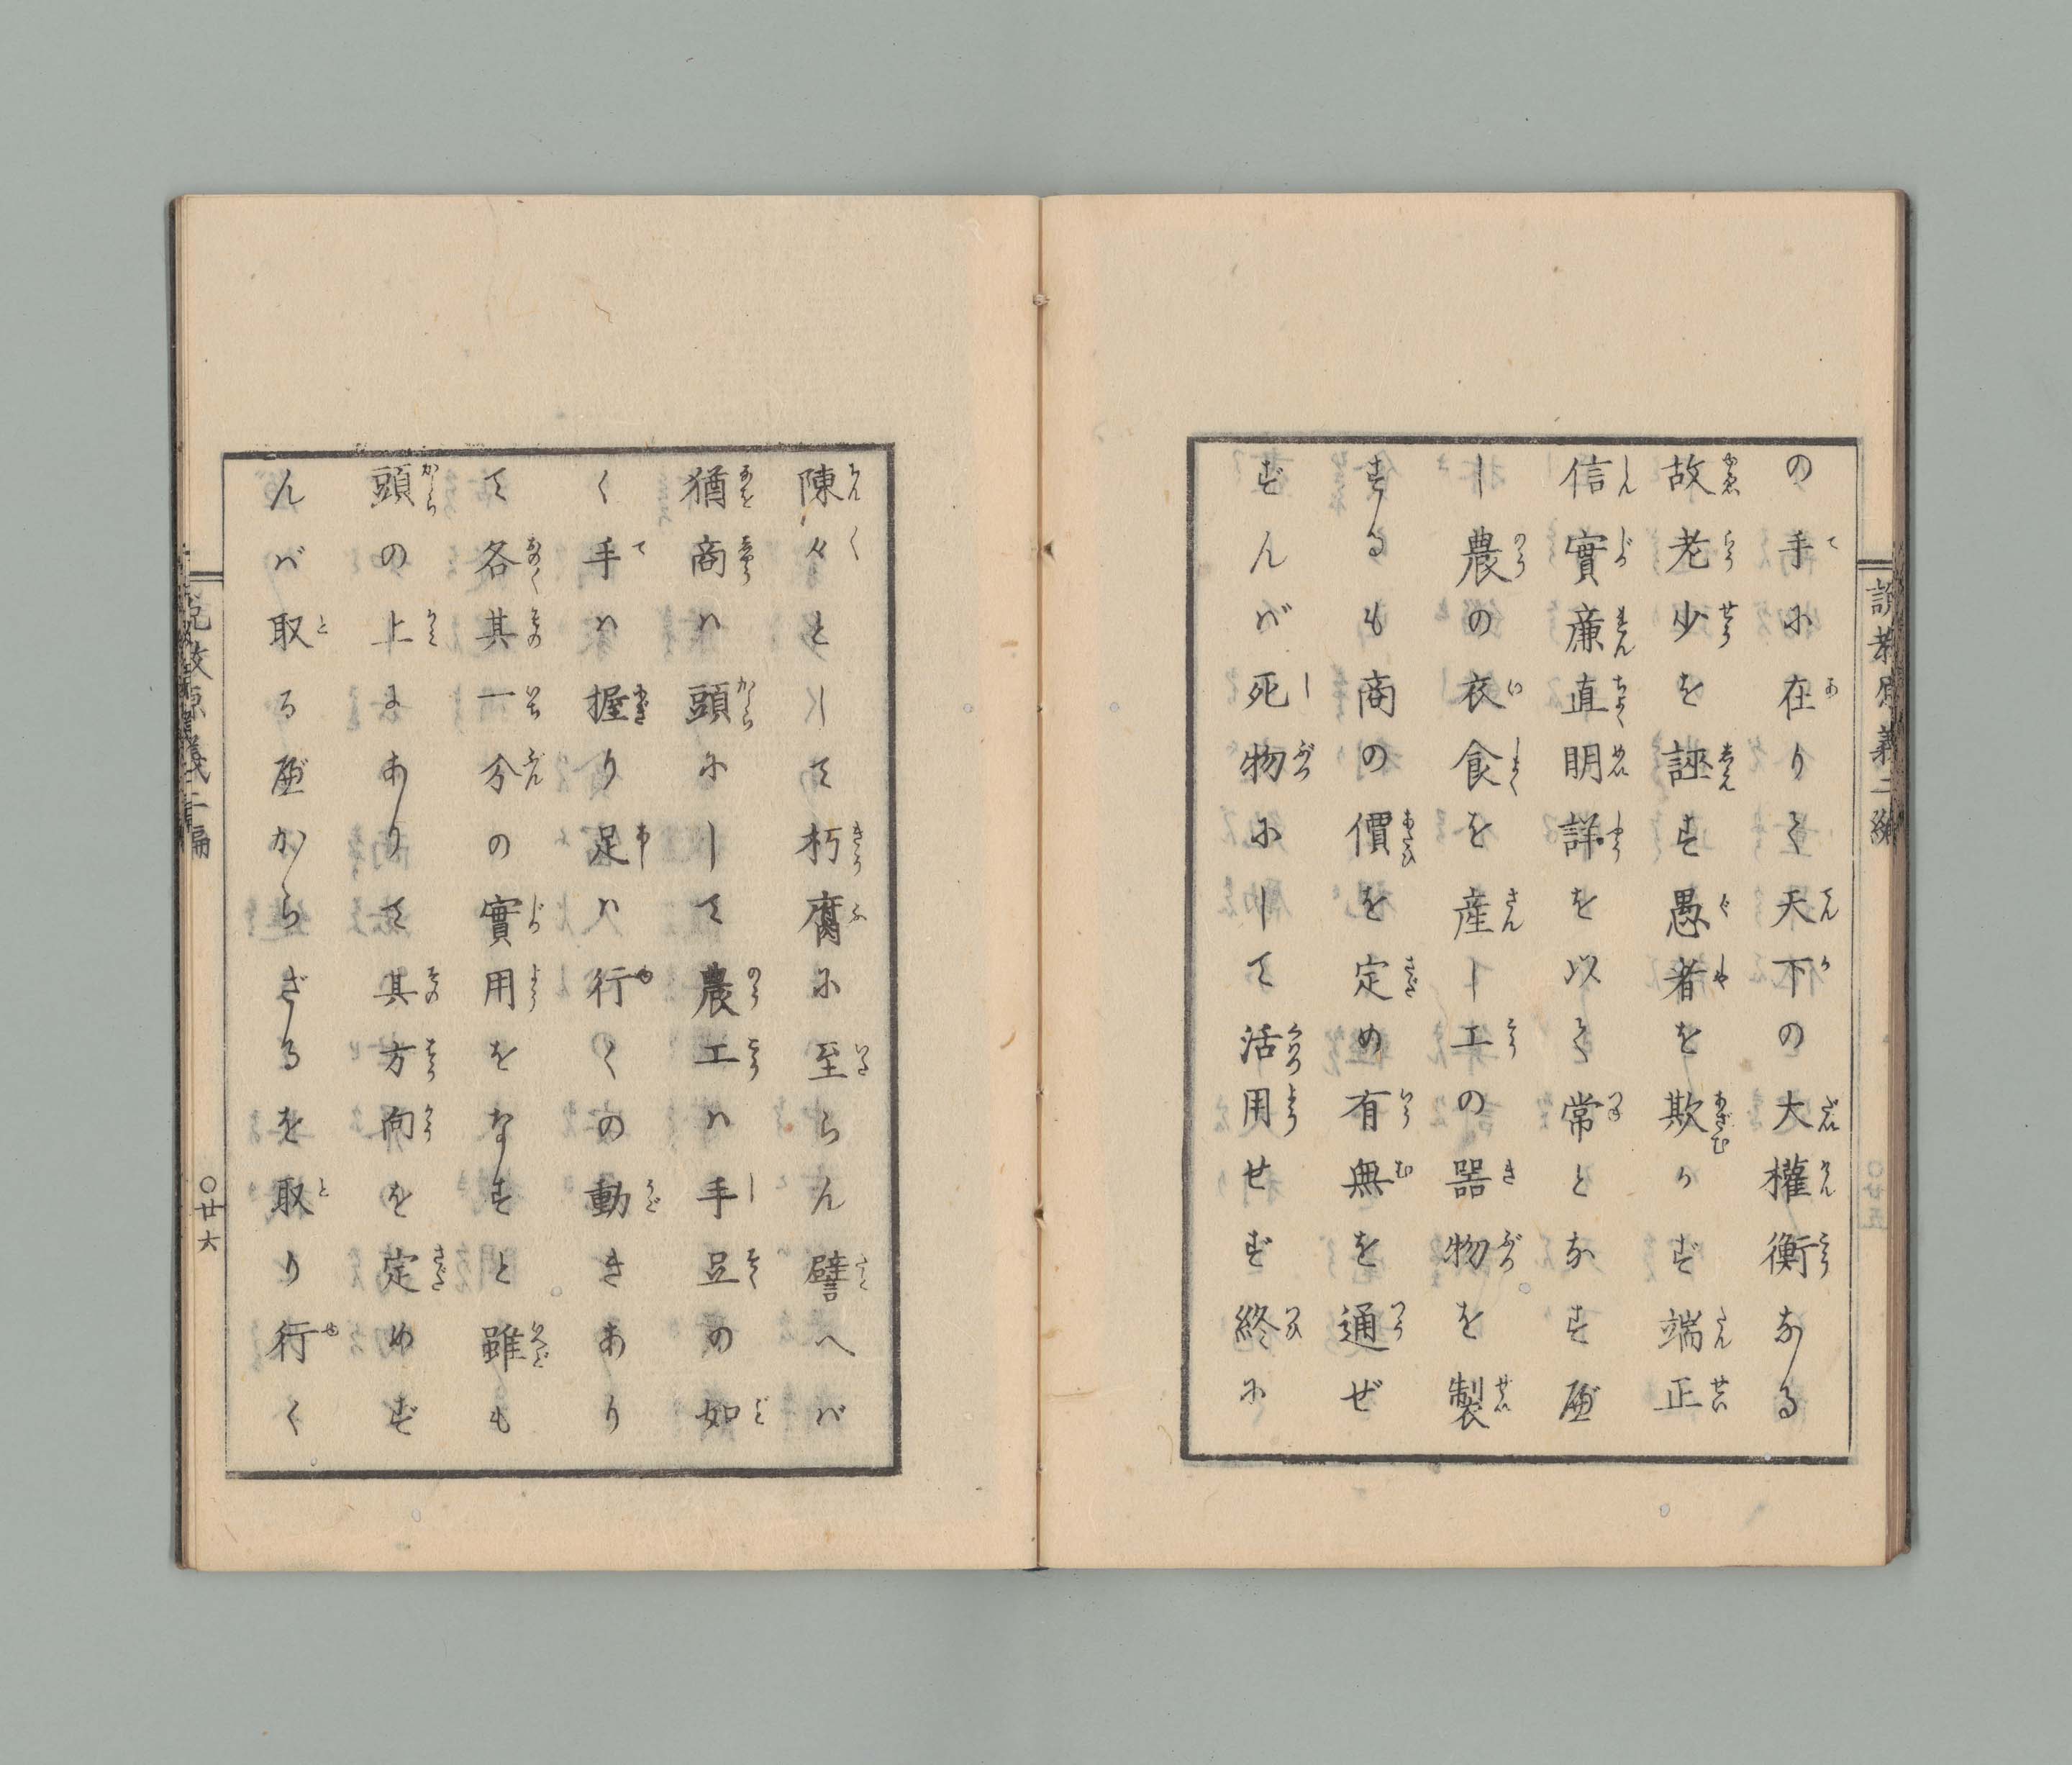 の手に在りて天下の大權衡なる
故老少を誣ず愚者を欺かず端正
信實廉直明詳を以て常となすべ
し農の衣食を産し工の器物を製
するも商の價を定め有無を通ぜ
ずんば死物にして活用せず終に
陳々として朽腐に至らん譬へば
猶商ハ頭にして農工ハ手足の如
く手ハ握り足ハ行くの動きあり
て各其一分の實用をなすと雖も
頭の上にありて其方向を定めず
んば取るべからざるを取り行く
說教原義二編
〇廿六